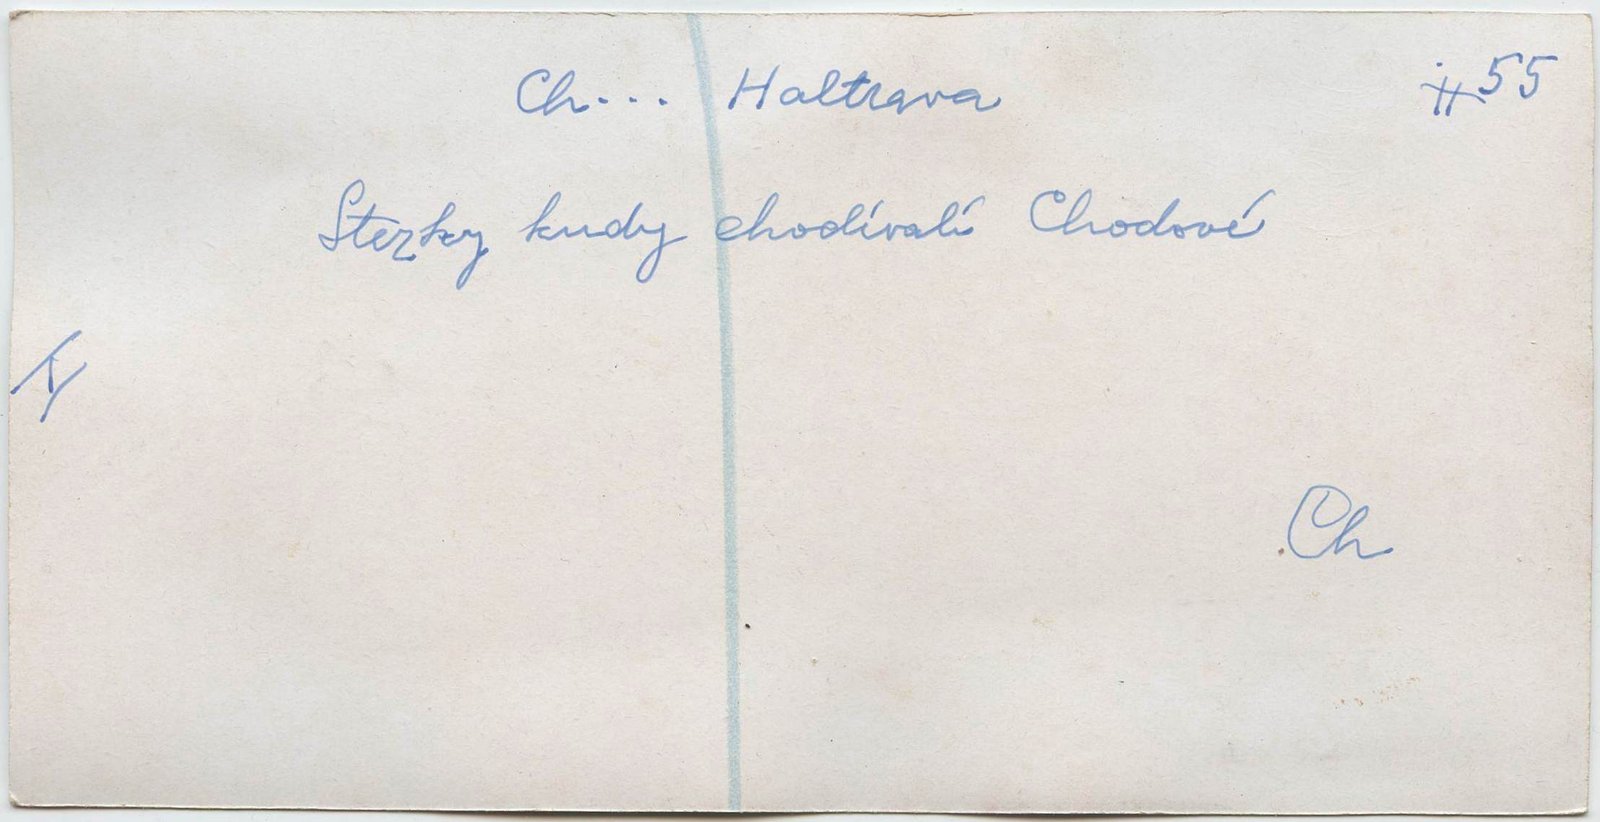 Ch... Haltrava
#55
Stezky kudy chodívali Chodové
Ch